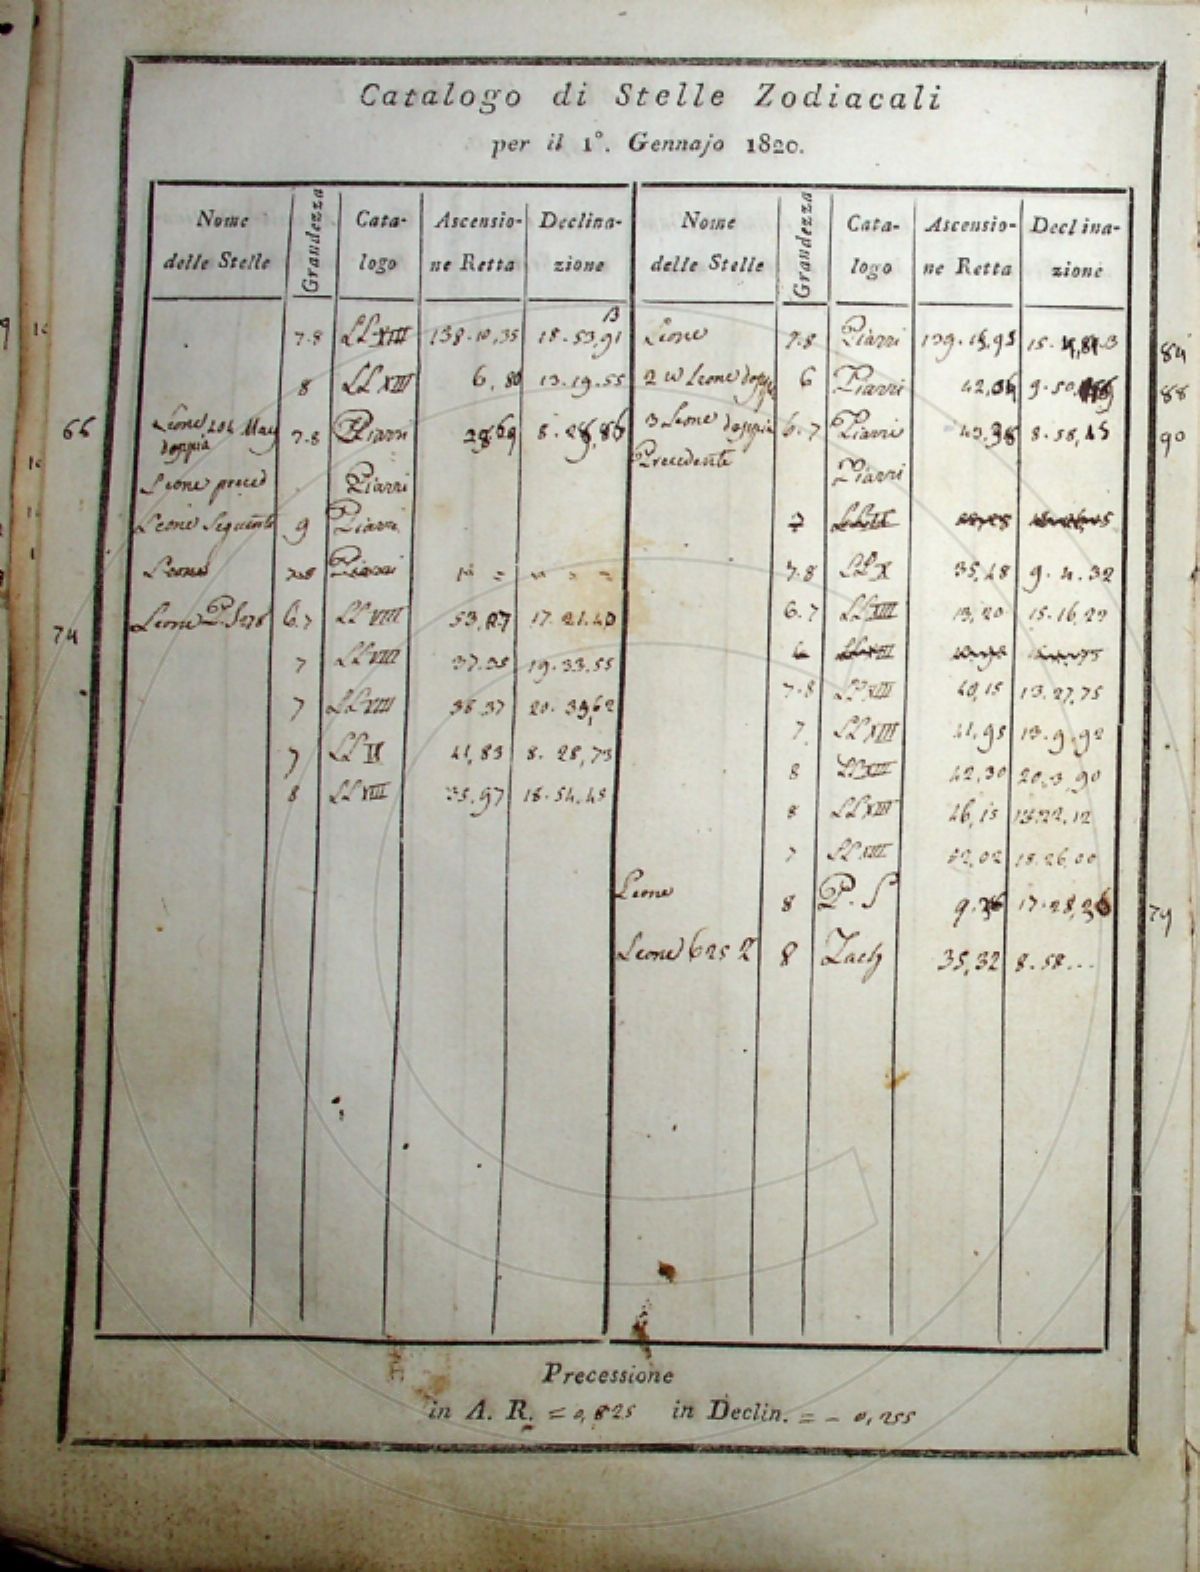 Catalogo di Stelle Zodiacali
per il 1°. Gennajo 1820.
Nome delle Stelle Grandezza Cata-logo Ascensio-ne Retta Declina-zione
7.8 LL XIII 138.10,35 18.53,91
8 LL XIII 6,80 13.19.55
66 Leone doppia 7.8 Piazzi 8.28,86
Leone preced Piazzi
Leone Seguente 9 Piazzi
Leone 7.8 Piazzi
74 Leone P. 6.7 LL VIII 53,27 17.21.40
7 LL VIII 37.35 19.33.55
7 LL VIII 38.37 20.33,62
7 LL IX 41,83 8.28,73
8 LL VIII 35,97 18.54.45
Nome delle Stelle Grandezza Cata-logo Ascensio-ne Retta Declina-zione
Leone 7.8 Piazzi 84
2 ω Leone doppia 6 Piazzi 9.50 88
3 Leone doppia 6.7 Piazzi 43.38 8.58,45 90
Precedente Piazzi
7.8 LL X 35,48 9.4.32
6.7 LL XIII 13,20 15.16,27
7.8 LL XIII 40,15 13.27,75
7 LL XIII 41,95 13.9.92
8 LL XIII 42,30 20.3,90
8 LL XIII 46,15 22,12
7 LL XIII 52,02 18.26,00
Leone 8 P.S 17.28,36 79
Leone 625 Z 8 Zach 35,32 8.58...
Precessione
in A. R. = 0,825 in Declin. = - 0,255